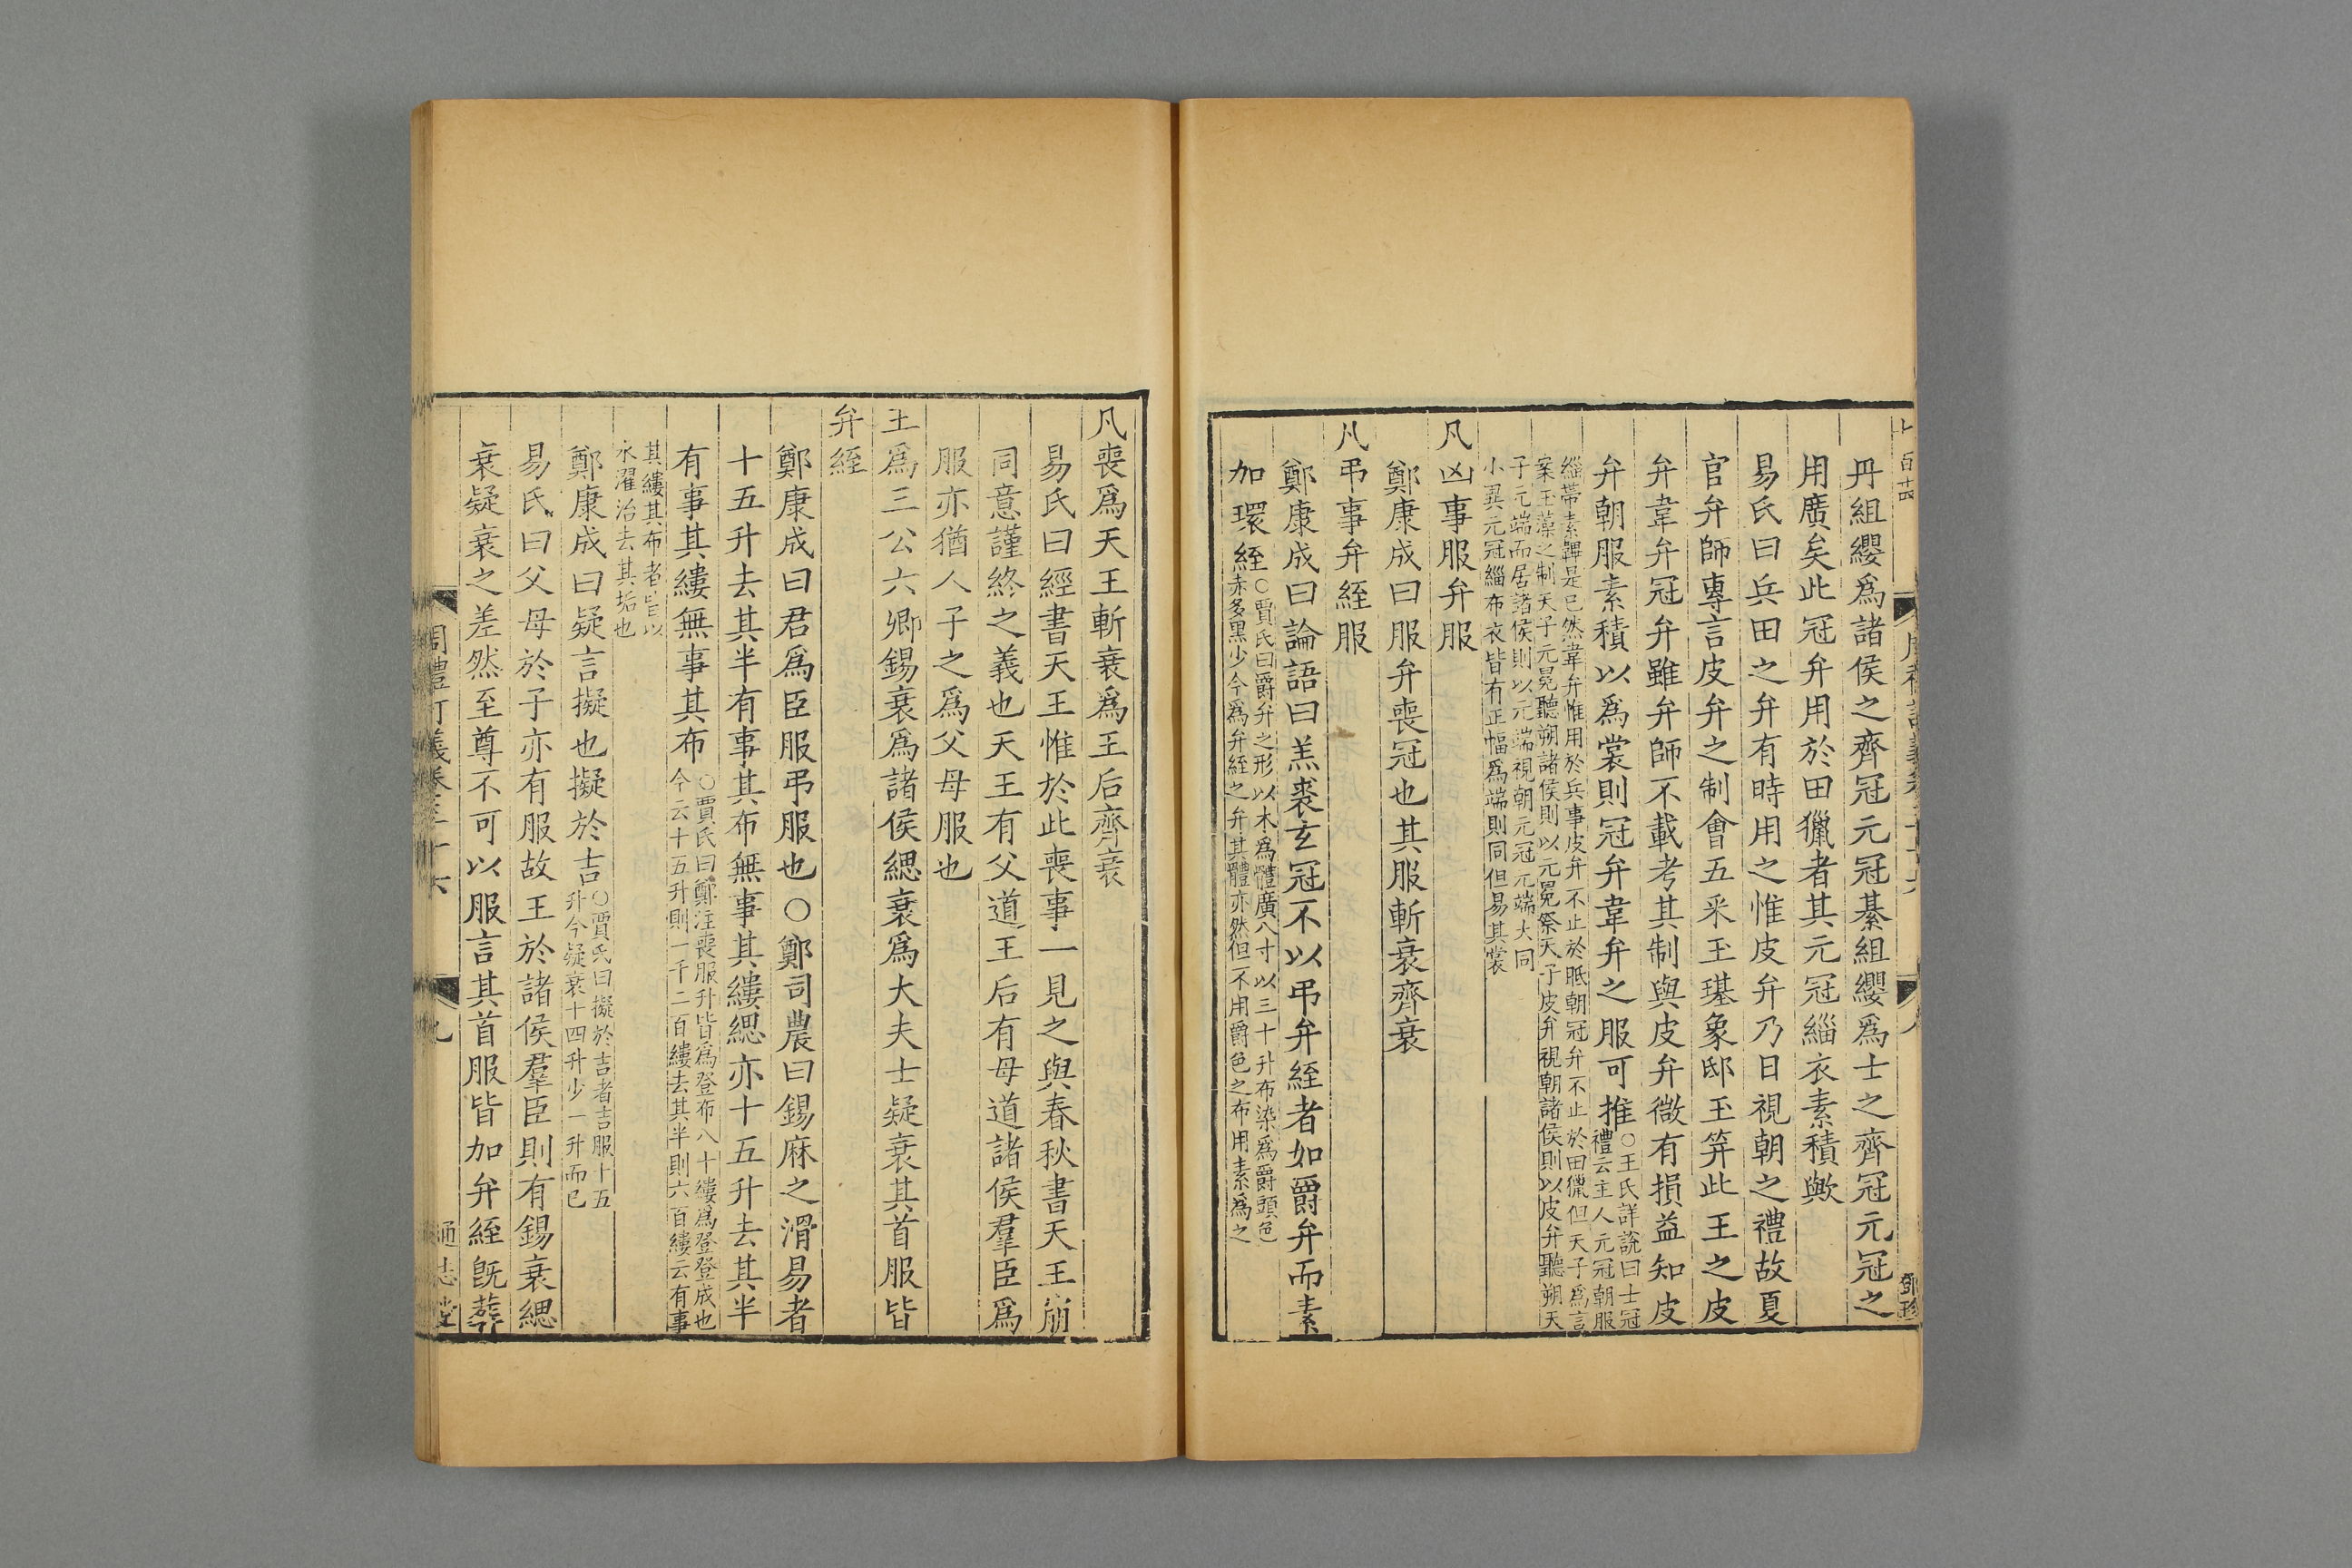 丹組纓爲諸侯之齊冠元冠綦組纓爲士之齊冠元冠之
用廣矣此冠弁用於田獵者其元冠緇衣素積歟
易氏曰兵田之弁有時用之惟皮弁乃日視朝之禮故夏
官弁師專言皮弁之制會五采玉璂象邸玉笄此王之皮
弁韋弁冠弁雖弁師不載考其制與皮弁微有損益知皮
弁朝服素積以爲裳則冠弁韋弁之服可推○王氏詳說曰士冠
禮云主人元冠朝服
緇帶素韠是已然韋弁惟用於兵事皮弁不止於眡朝冠弁不止於田獵但天子爲言
案玉藻之制天子元冕聽朔諸侯則以元冕祭天子皮弁視朝諸侯則以皮弁聽朔天
子元端而居諸侯則以元端視朝元冠元端大同
小異元冠緇布衣皆有正幅爲端則同但易其裳
凡凶事服弁服
鄭康成曰服弁喪冠也其服斬衰齊衰
凡弔事弁絰服
鄭康成曰論語曰羔裘玄冠不以弔弁絰者如爵弁而素
加環絰○賈氏曰爵弁之形以木爲體廣八寸以三十升布染爲爵頭色
赤多黑少今爲弁絰之弁其體亦然但不用爵色之布用素爲之
凡喪爲天王斬衰爲王后齊衰
易氏曰經書天王惟於此喪事一見之與春秋書天王崩
同意謹終之義也天王有父道王后有母道諸侯羣臣爲
服亦猶人子之爲父母服也
王爲三公六卿錫衰爲諸侯緦衰爲大夫士疑衰其首服皆
弁絰
鄭康成曰君爲臣服弔服也○鄭司農曰錫麻之滑易者
十五升去其半有事其布無事其縷緦亦十五升去其半
有事其縷無事其布○賈氏曰鄭注喪服升皆爲登布八十縷爲登登成也
今云十五升則一千二百縷去其半則六百縷云有事
其縷其布者皆以
水濯治去其垢也
鄭康成曰疑言擬也擬於吉○賈氏曰擬於吉者吉服十五
升今疑衰十四升少一升而已
易氏曰父母於子亦有服故王於諸侯羣臣則有錫衰緦
衰疑衰之差然至尊不可以服言其首服皆加弁絰旣葬
通志堂